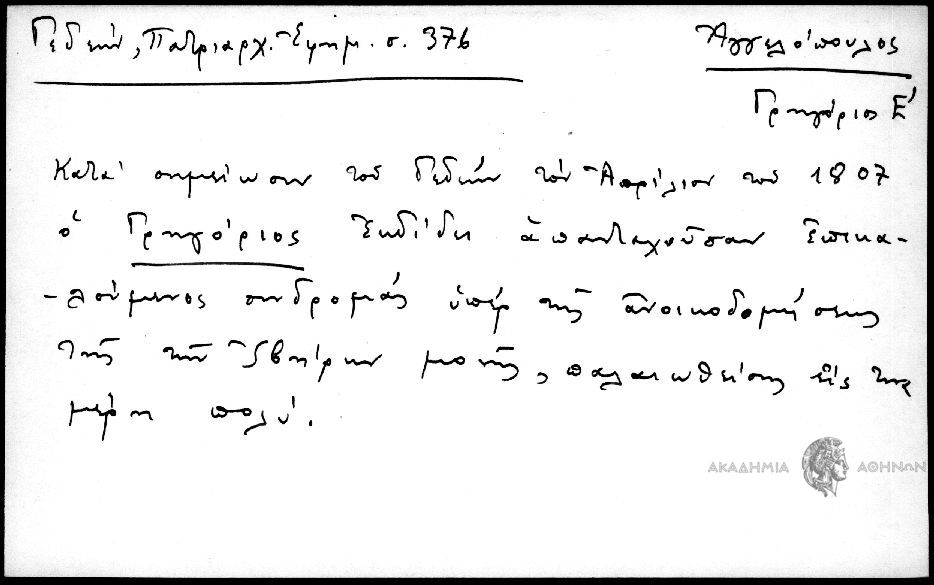 Γεδεών, Πατριαρχ. Ἐφημ. σ. 376
Ἀγγελόπουλος
Γρηγόριος Ε'
Κατά σημείωσιν τοῦ Γεδεών τόν Ἀπρίλιον τοῦ 1807
ὁ Γρηγόριος ἐκδίδει ἀπανταχοῦσαν ἐπικα-
-λούμενος συνδρομάς ὑπέρ τῆς ἀνοικοδομήσεως
τῆς τῶν Ἰβήρων μονῆς, παλαιωθείσης εἰς τινα
μέρη πολύ.
ΑΚΑΔΗΜΙΑ ΑΘΗΝΩΝ